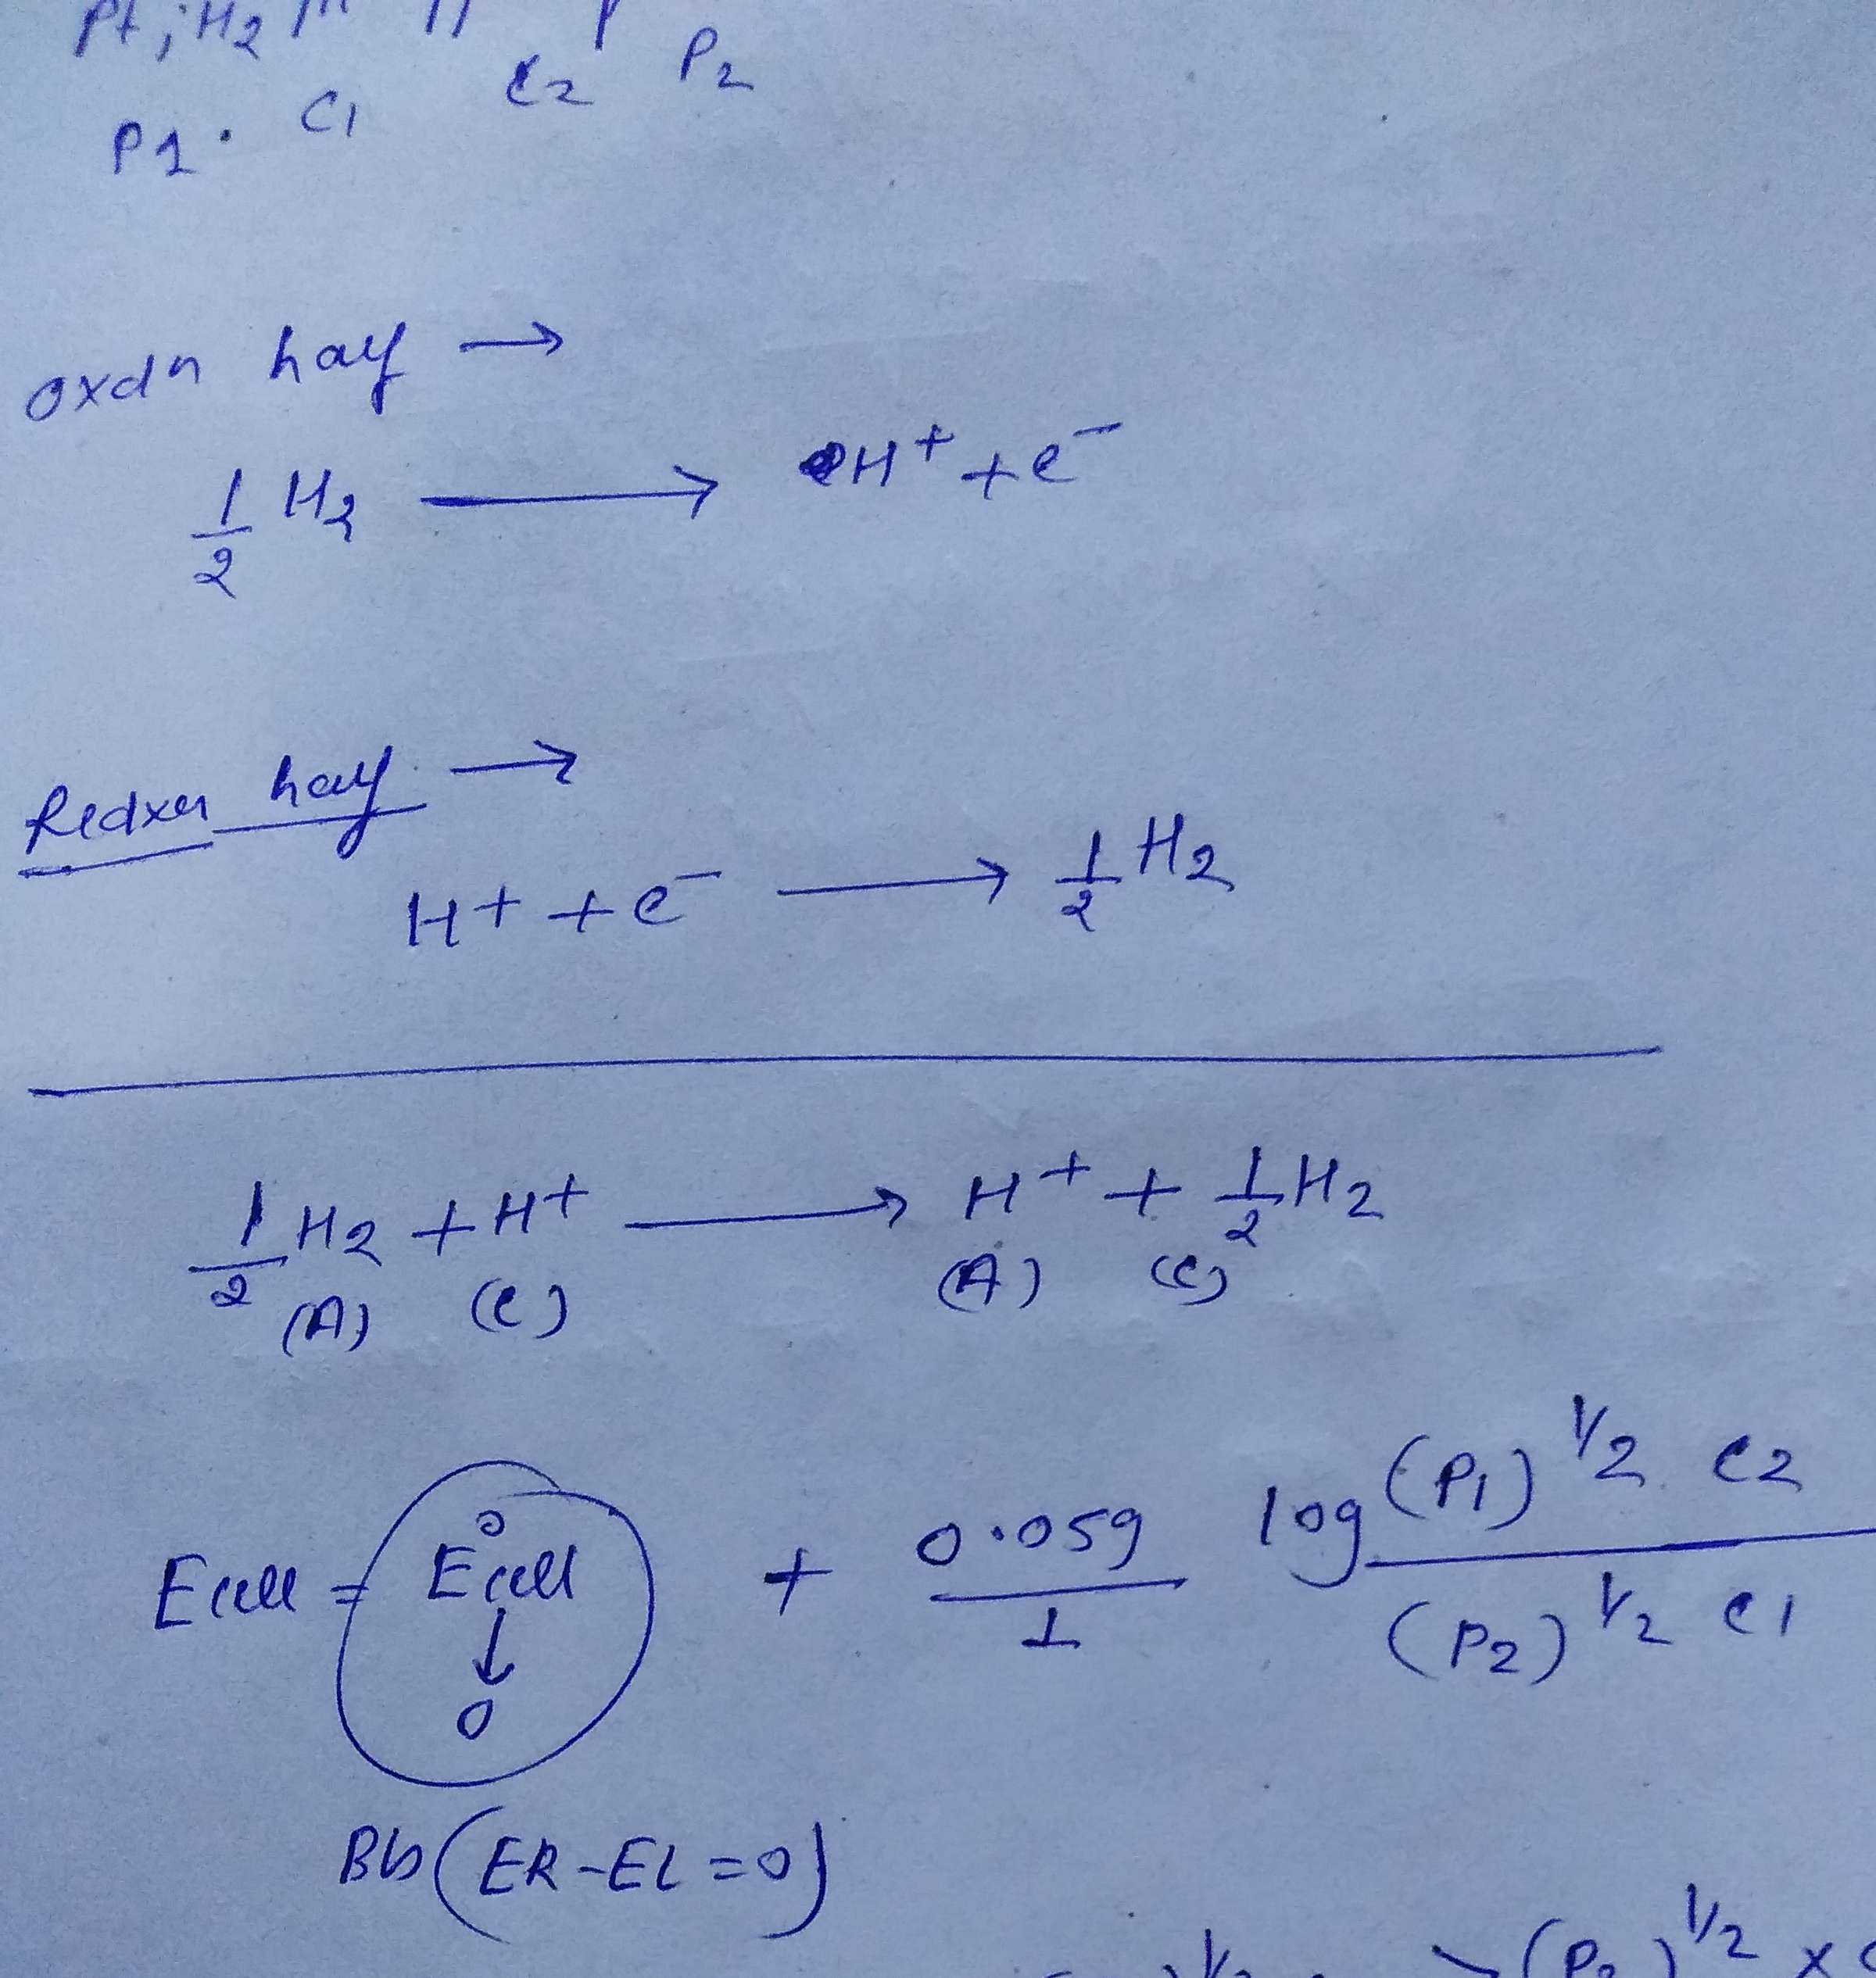 Pt, H2
P1 . C1 C2 P2
oxdn half →
1/2 H2 → H+ + e-
Redxn half →
H+ + e- → 1/2 H2
1/2 H2 + H+ → H+ + 1/2 H2
(A) (C) (A) (C)
Ecell = E°cell + 0.059/1 log (P1)^1/2 C2 / (P2)^1/2 C1
↓
0
(ER-EL=0)
1/2 > (P2)^1/2 ×